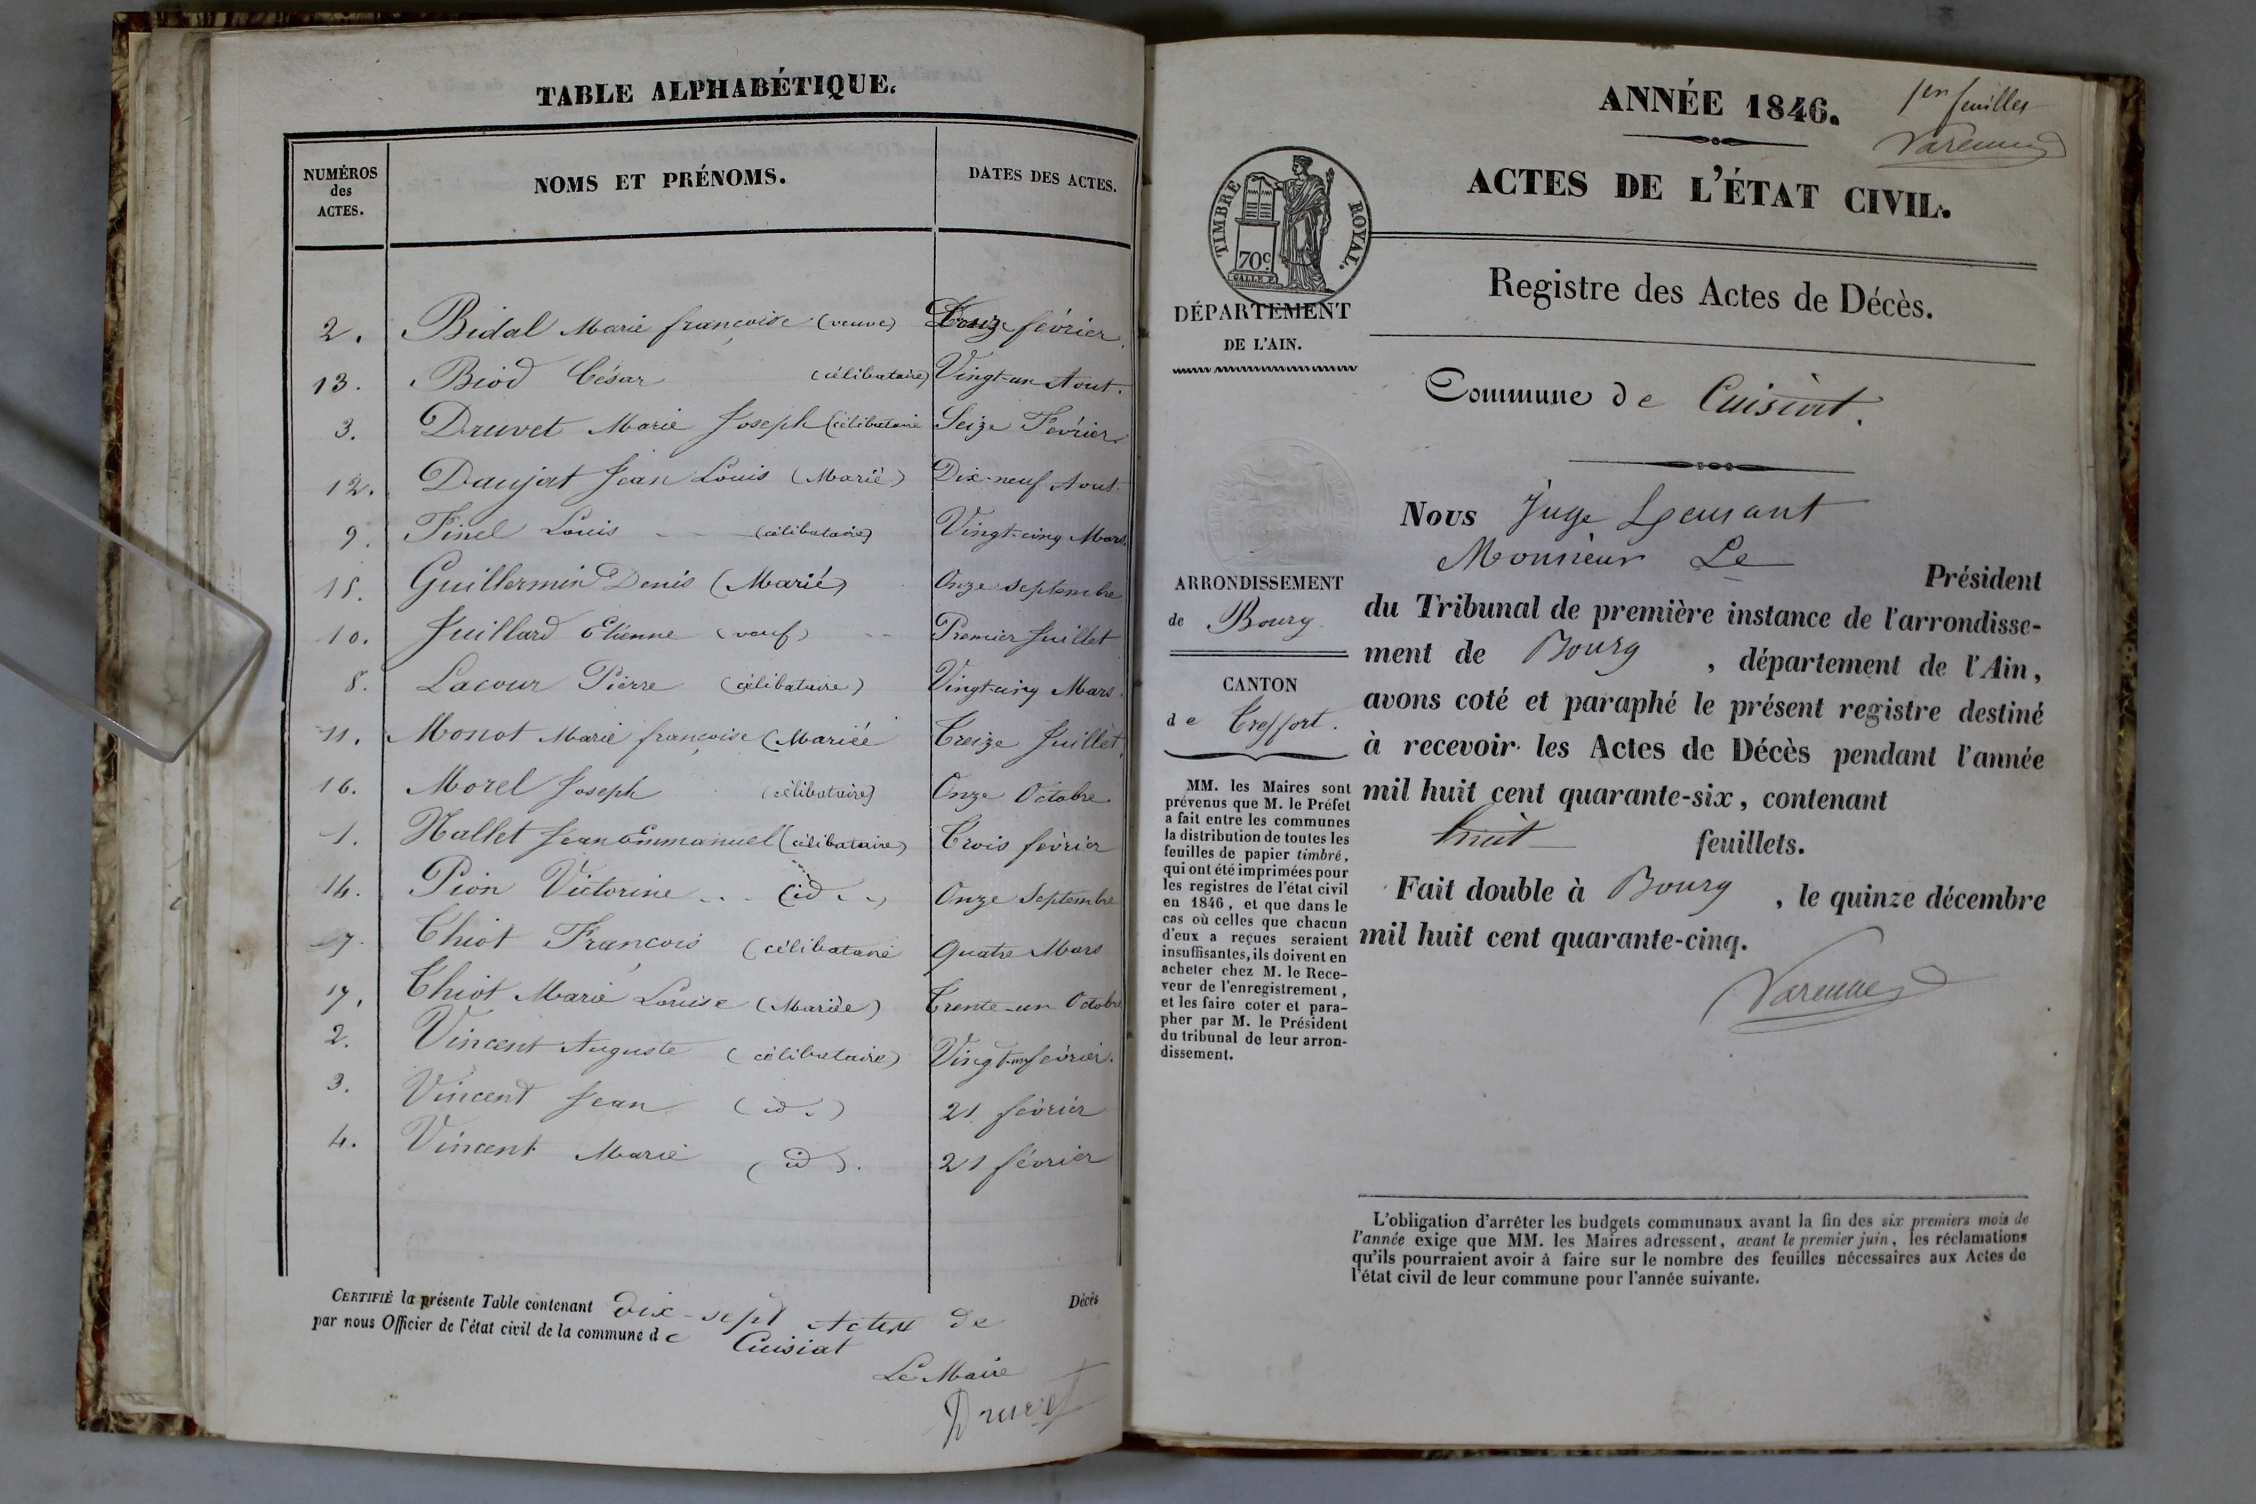 TABLE ALPHABÉTIQUE.
NUMÉROS
des
ACTES.
NOMS ET PRÉNOMS.
DATES DES ACTES.
2. Bidal Marie françoise (veuve) février.
13. Biod César (célibataire) Vingt-un Aout.
3. Druvet Marie Joseph (célibataire Seize Février
12. Daujat Jean Louis (Marié) Dix-neuf Aout
9. Finel Louis (célibataire) Vingt-cinq Mars.
15. Guillermin Denis (Marié) Onze septembre
10. Juillard Etienne (veuf) Premier Juillet
8. Lacour Pierre (célibataire) Vingt-cinq Mars.
11. Monot Marie françoise (Mariée Treize Juillet,
16. Morel Joseph (célibataire) Onze Octobre
1. Nallet Jean Emmanuel (célibataire) Trois février
14. Pion Victorine (id..) Onze Septembre
7. Thiot François (célibataire Quatre Mars
17. Thiot Marie Louise (Mariée) Trente-un Octobre
2. Vincent Auguste (célibataire) Vingt-un février.
3. Vincent Jean (id.) 21 février
4. Vincent Marie (id). 21 février
CERTIFIÉ la présente Table contenant dix-sept Actes de Décès
par nous Officier de l'état civil de la commune de Cuisiat
Le Maire
Druvet
ANNÉE 1846.
1er feuillet
Varenne
ACTES DE L'ÉTAT CIVIL.
TIMBRE ROYAL.
70c
DÉPARTEMENT
DE L'AIN.
Registre des Actes de Décès.
Commune de Cuisiat.
ARRONDISSEMENT
de Bourg
CANTON
de Treffort.
MM. les Maires sont
prévenus que M. le Préfet
a fait entre les communes
la distribution de toutes les
feuilles de papier timbré,
qui ont été imprimées pour
les registres de l'état civil
en 1846, et que dans le
cas où celles que chacun
d'eux a reçues seraient
insuffisantes, ils doivent en
acheter chez M. le Rece-
veur de l'enregistrement,
et les faire coter et para-
pher par M. le Président
du tribunal de leur arron-
dissement.
Nous Juge
Monsieur Le Président
du Tribunal de première instance de l'arrondisse-
ment de Bourg, département de l'Ain,
avons coté et paraphé le présent registre destiné
à recevoir les Actes de Décès pendant l'année
mil huit cent quarante-six, contenant
huit feuillets.
Fait double à Bourg, le quinze décembre
mil huit cent quarante-cinq.
Varenne
L'obligation d'arrêter les budgets communaux avant la fin des six premiers mois de
l'année exige que MM. les Maires adressent, avant le premier juin, les réclamations
qu'ils pourraient avoir à faire sur le nombre des feuilles nécessaires aux Actes de
l'état civil de leur commune pour l'année suivante.